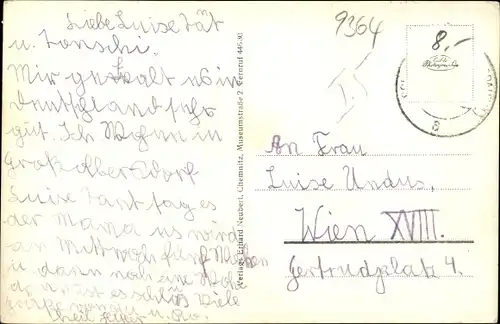 Liebe Luise Tät
u. Tonschi.
Mir gefält es in
Deutschland sehr
gut. Ich Wohne in
Groß olbersdorf
Luise Tant sag es
der Mama es wird
am Mittwoch fünf Wochen
u. dann noch eine Woh
da ist es schluß Viele
grüße von
u. Ro.
9364
8,-
Verlag: Erhard Neubert, Chemnitz, Museumstraße 2 Fernruf 44630
An Frau
Luise Undus,
Wien XVIII.
Gertrudplatz 4.